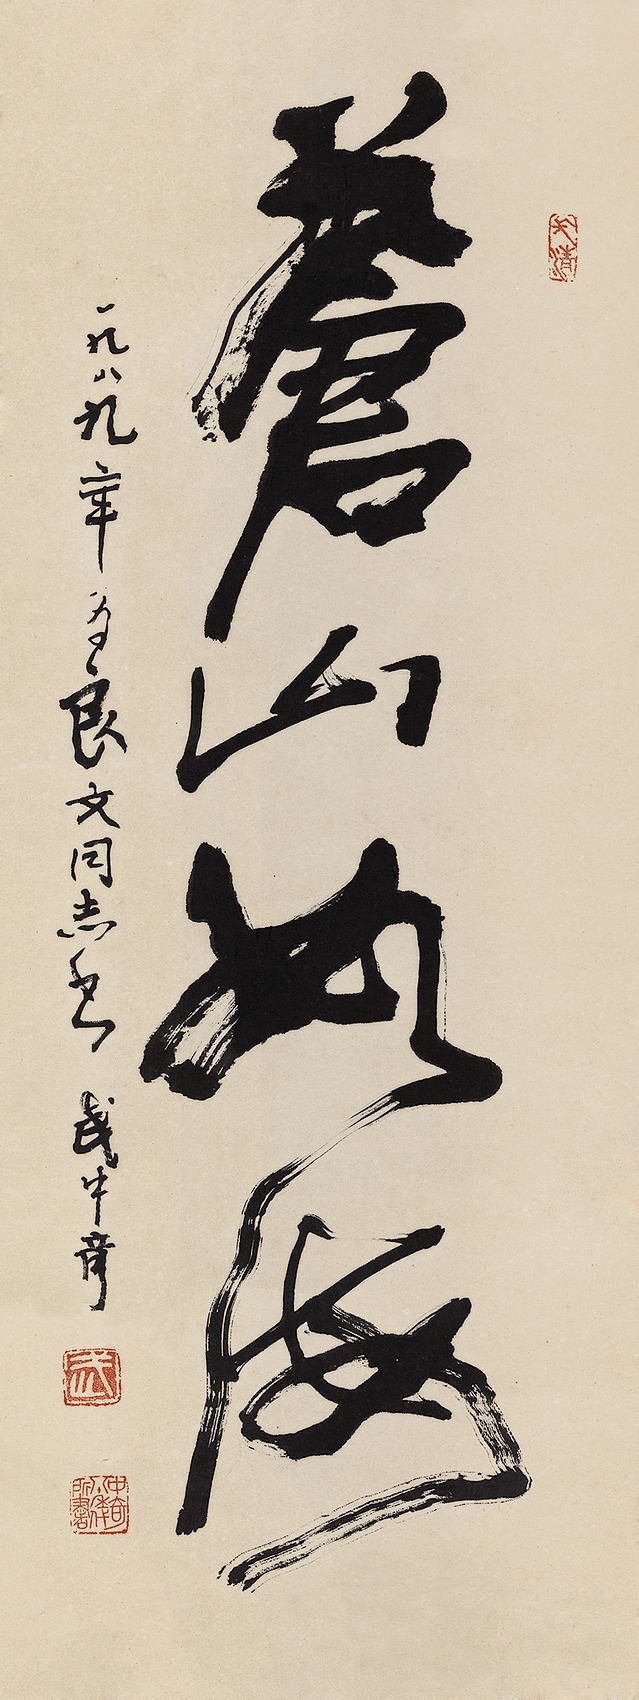 苍山如海
一九八九年为良文同志书 武中奇
武